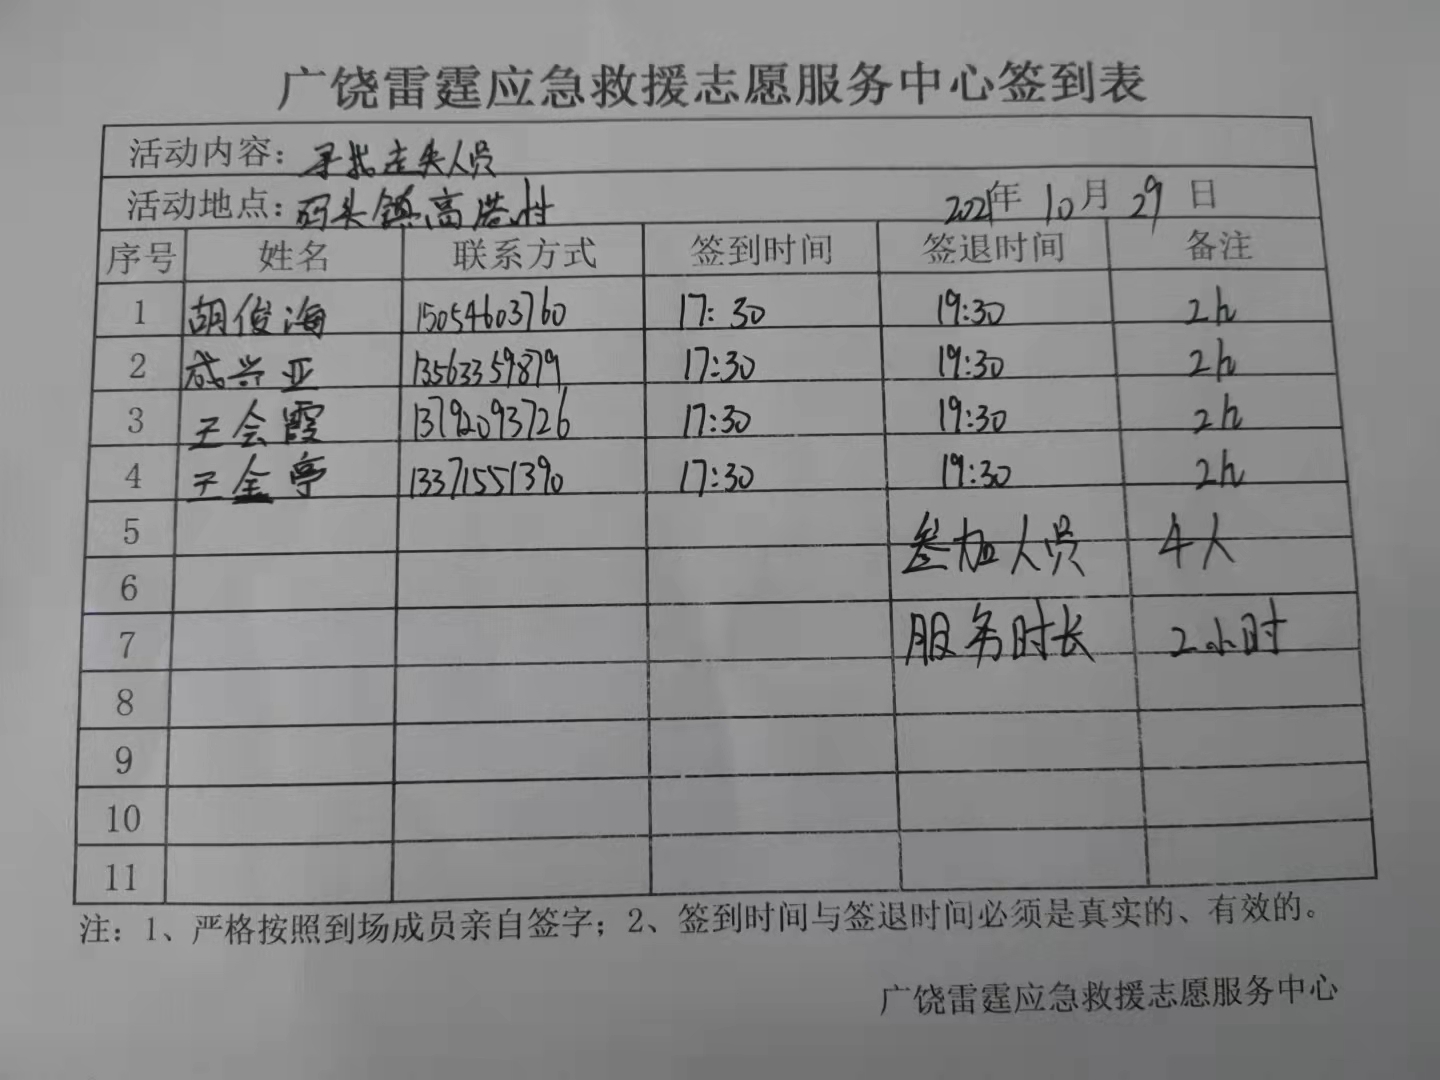 广饶雷霆应急救援志愿服务中心签到表
活动内容：寻找走失人员
活动地点：码头镇高港村 2021年 10月 29日
序号 姓名 联系方式 签到时间 签退时间 备注
1 胡俊海 15054603760 17:30 19:30 2h
2 成兴亚 13563359879 17:30 19:30 2h
3 王会霞 13792093726 17:30 19:30 2h
4 王金亭 13371551390 17:30 19:30 2h
5 参加人员 4人
6
7 服务时长 2小时
8
9
10
11
注：1、严格按照到场成员亲自签字；2、签到时间与签退时间必须是真实的、有效的。
广饶雷霆应急救援志愿服务中心